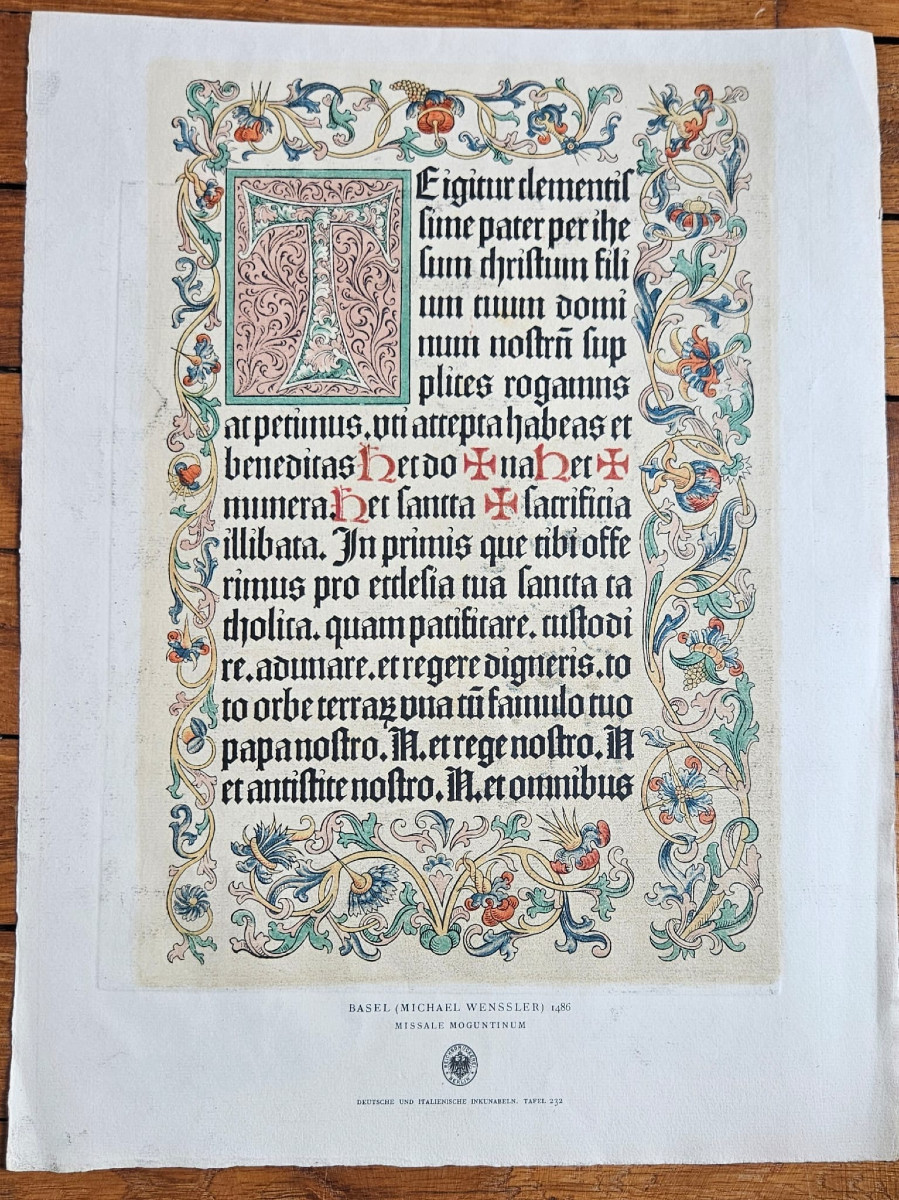 T E igitur clementis
sime pater per ihe
sum christum fili
um tuum domi
num nostrū sup
plices rogamus
ac petimus. vti accepta habeas et
benedicas Hec do ✠ na Hec ✠
munera. Hec sancta ✠ sacrificia
illibata. In primis que tibi offe
rimus pro ecclesia tua sancta ca
tholica. quam pacificare. custodi
re. adunare. et regere digneris. to
to orbe terraꝝ vna cū famulo tuo
papa nostro. N. et rege nostro. N
et antistite nostro. N. et omnibus
BASEL (MICHAEL WENSSLER) 1486
MISSALE MOGUNTINUM
REICHSDRUCKEREI
BERLIN
DEUTSCHE UND ITALIENISCHE INKUNABELN. TAFEL 232